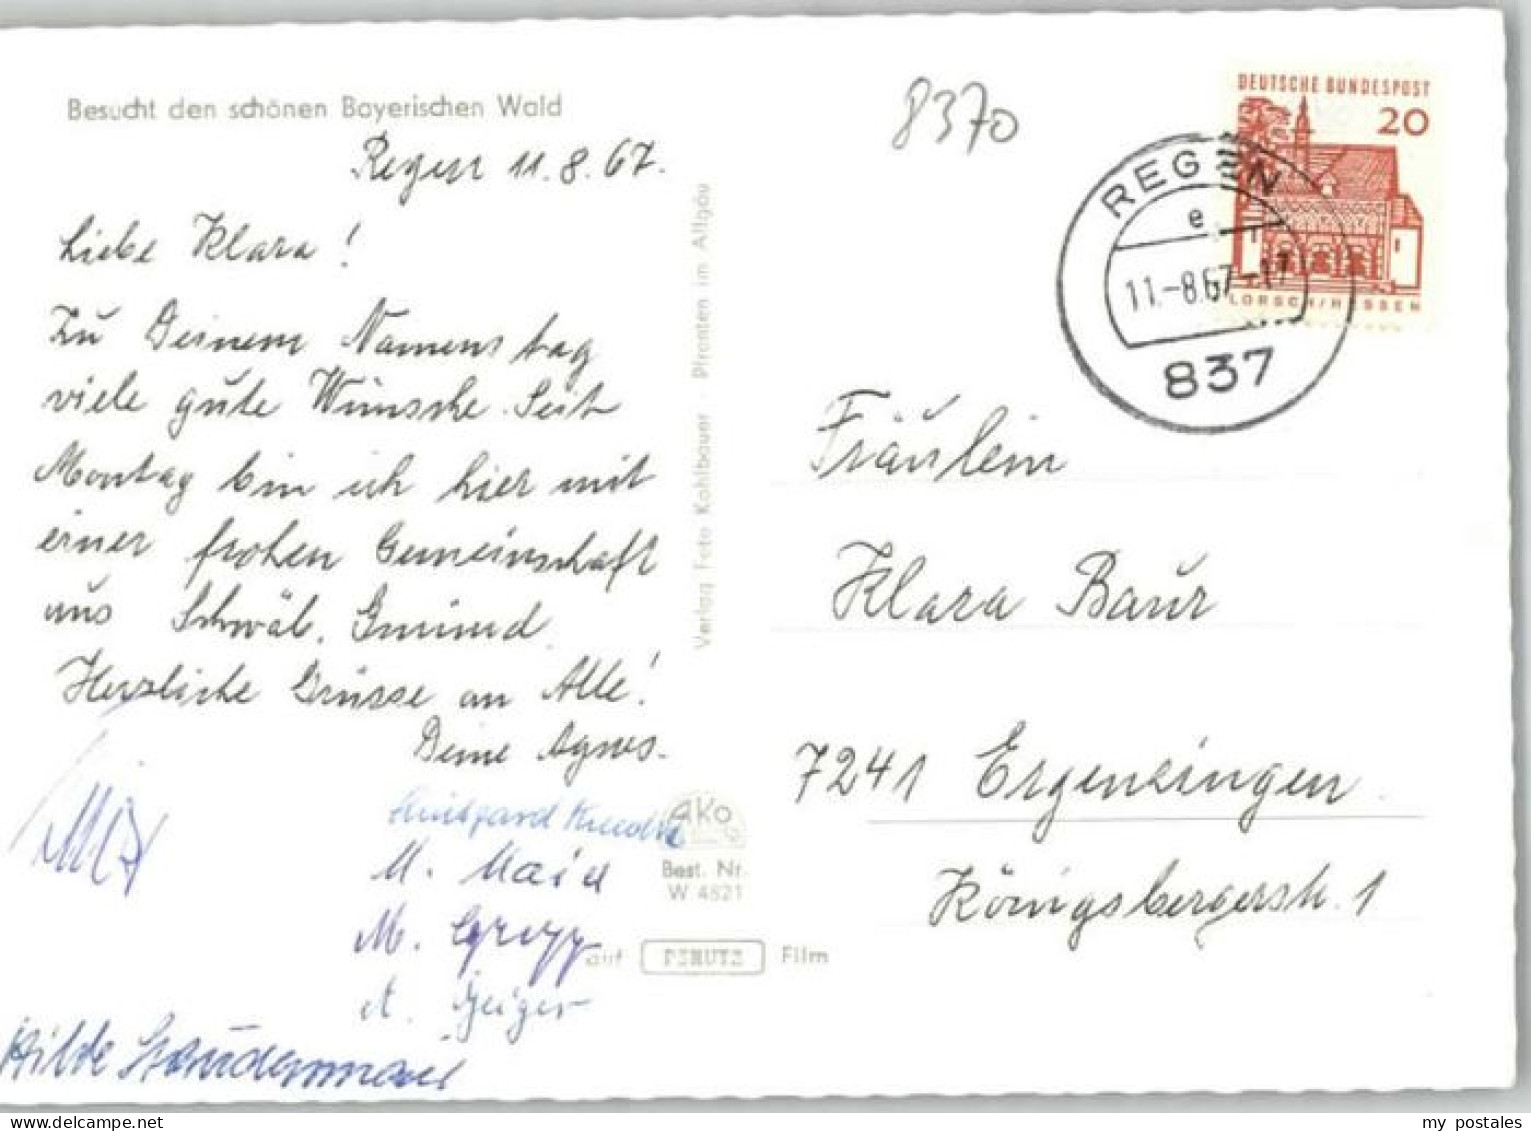 Besucht den schönen Bayerischen Wald
Regen 11.8.67.
Liebe Klara!
Zu Deinem Namenstag
viele gute Wünsche. Seit
Montag bin ich hier mit
einer frohen Gemeinschaft
aus Schwäb. Gmünd.
Herzliche Grüsse an Alle!
Deine Agnes.
M. Maid
M. Grupp
A. Geiger
Hilde Staudenmaier
Verlag Foto Kohlbauer · Pfronten im Allgäu
AKo
Best. Nr.
W 4821
auf PERUTZ Film
8370
DEUTSCHE BUNDESPOST
20
LORSCH/HESSEN
REGEN
e
11.-8.67-17
837
Fräulein
Klara Baur
7241 Ergenzingen.
Königsbergerstr. 1
my postales